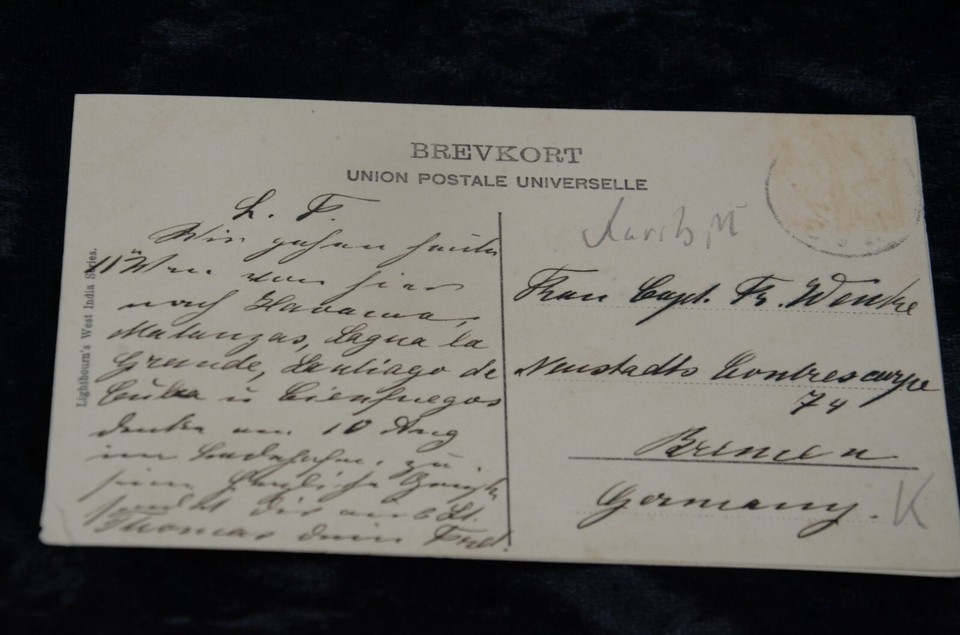 BREVKORT
UNION POSTALE UNIVERSELLE
Lightbourn's West India Series.
L. F.
Wir gehen heute
11 Uhr von hier
nach Havanna,
Matanzas, Sagua la
Grande, Santiago de
Cuba u Cienfuegos
denke am 10 Aug
im zu
sein Herzliche
sendet Dir aus St.
Thomas dein Fred.
Frau Capt. Fr. Wenke
Neustadts Contrescarpe
74
Bremen
Germany.
K